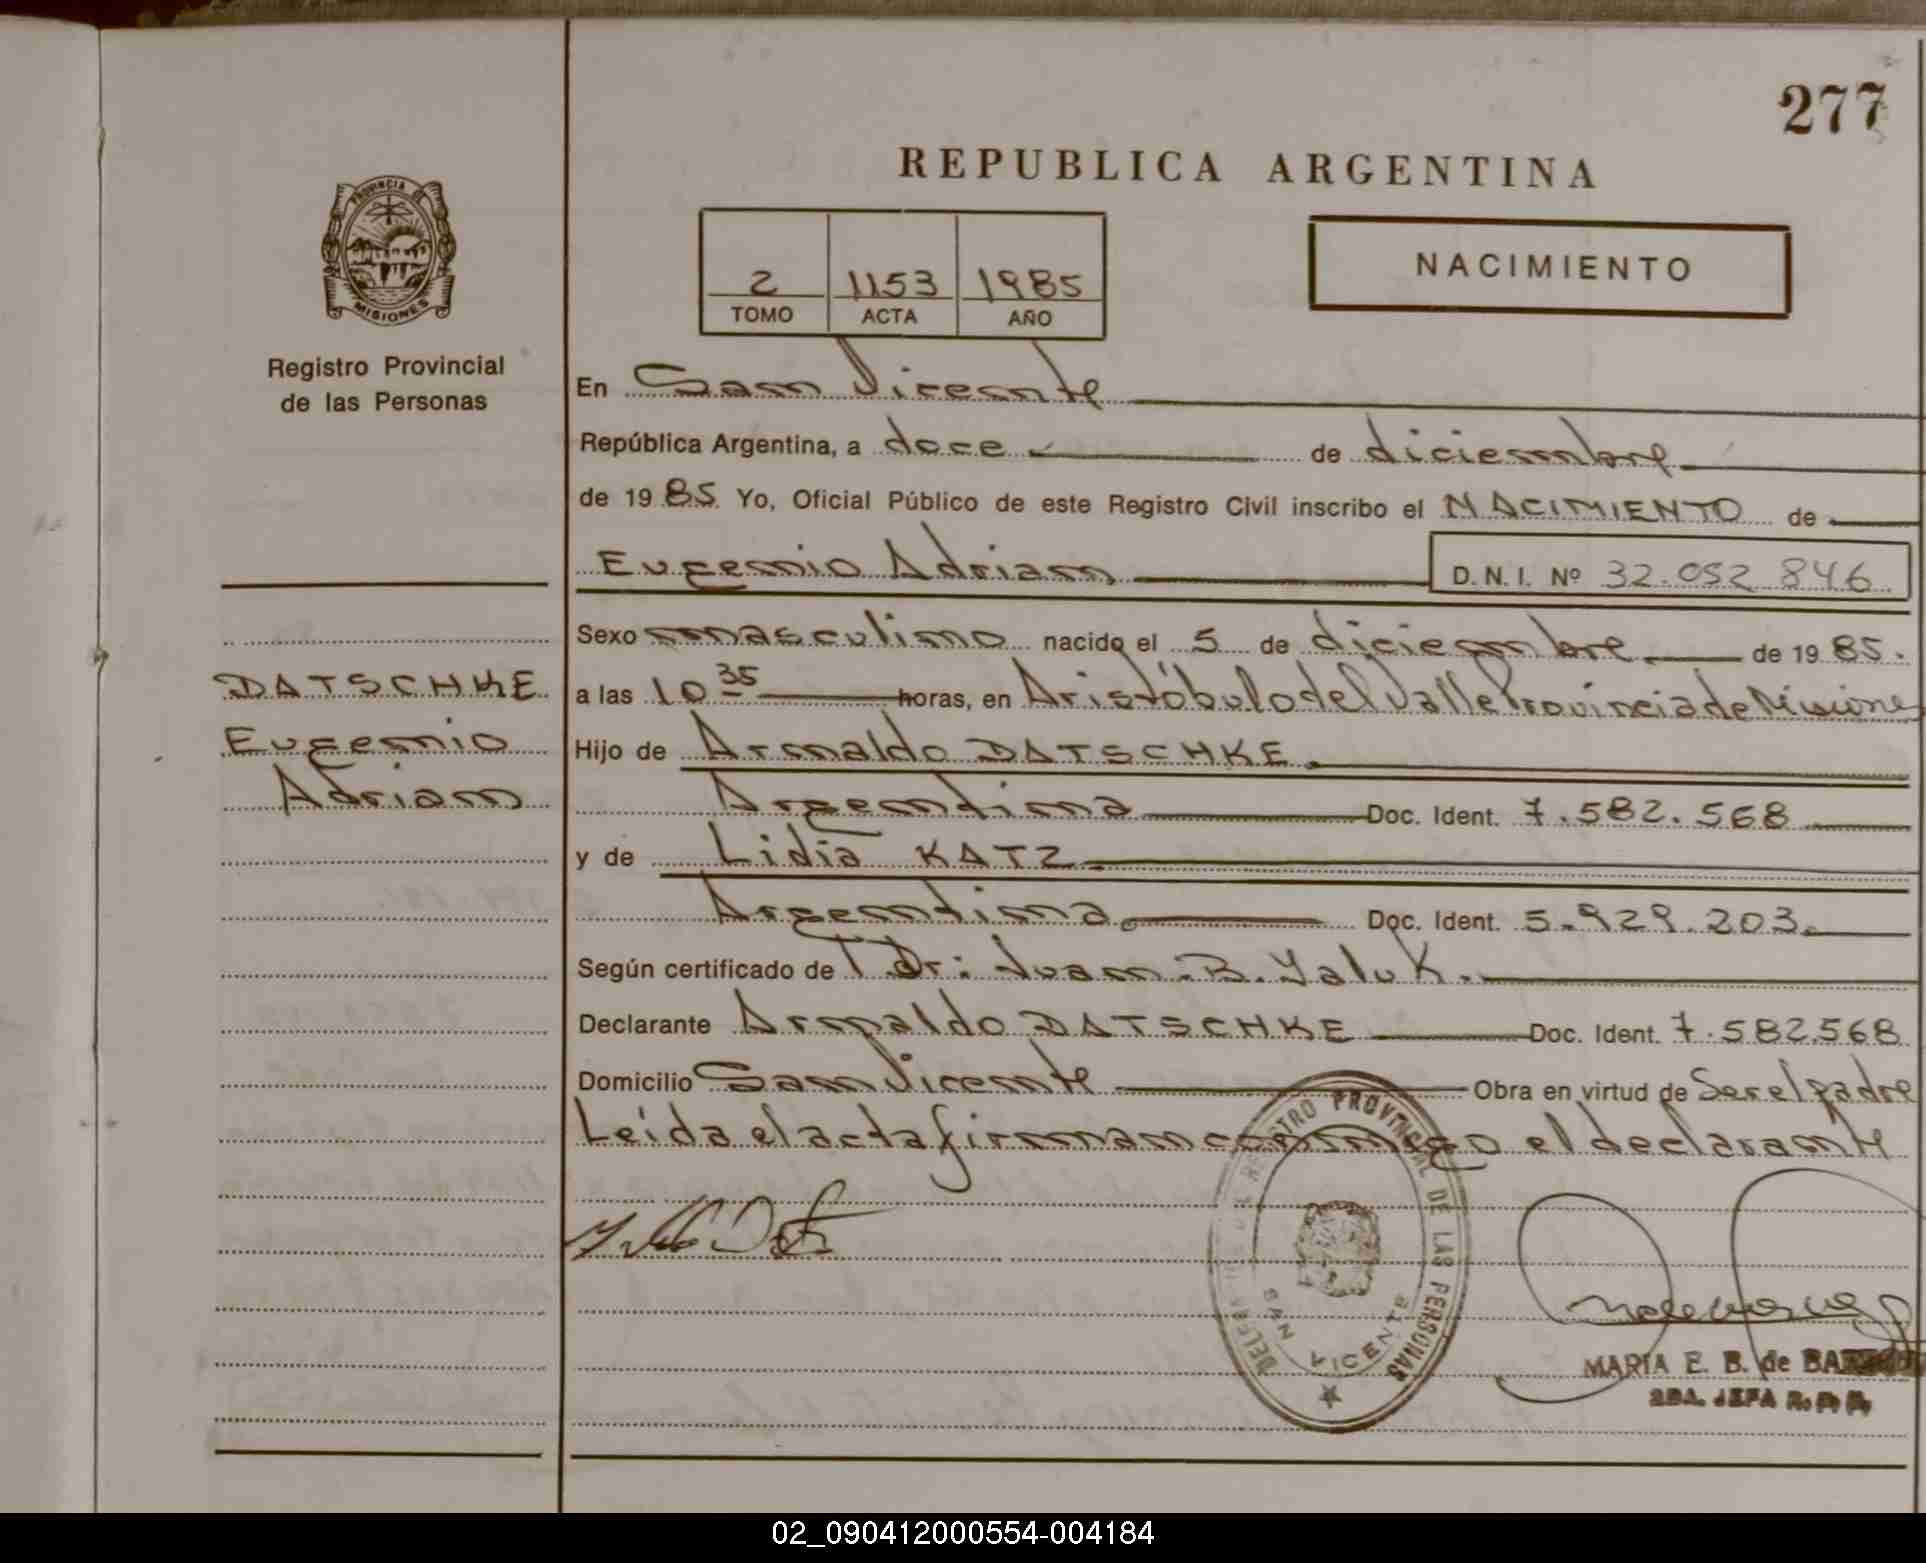 277
REPUBLICA ARGENTINA
PROVINCIA DE
MISIONES
Registro Provincial
de las Personas
NACIMIENTO
2 1153 1985
TOMO ACTA AÑO
En San Vicente
República Argentina, a doce de diciembre
de 1985. Yo, Oficial Público de este Registro Civil inscribo el NACIMIENTO de
Eugenio Adrian D.N.I. Nº 32.052 846
Sexo masculino nacido el 5 de diciembre de 1985.
DATSCHKE
Eugenio
Adrian
a las 10 35 horas, en Aristóbulo del Valle Provincia de Misiones
Hijo de Arnaldo DATSCHKE.
Argentina Doc. Ident. 7.582.568
y de Lidia KATZ
Argentina. Doc. Ident. 5.929.203.
Según certificado de Dr: Juan B. Yaluk.
Declarante Arnaldo DATSCHKE Doc. Ident. 7.582.568
Domicilio San Vicente Obra en virtud de Ser el padre
Leída el acta firman conmigo el declarante
REGISTRO PROVINCIAL DE LAS PERSONAS
SAN VICENTE
MARIA E. B. de
JEFA R. P. P.
02_090412000554-004184